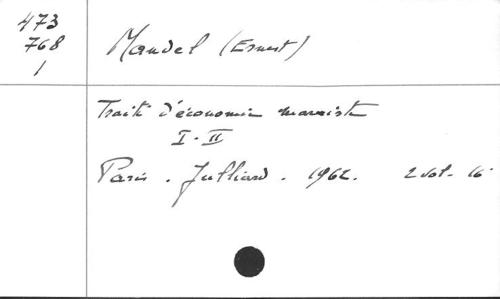 473
768
1
Mandel (Ernest)
Traité d'économie marxiste
I-II
Paris. Julliard. 1962. 2 vol. 16°